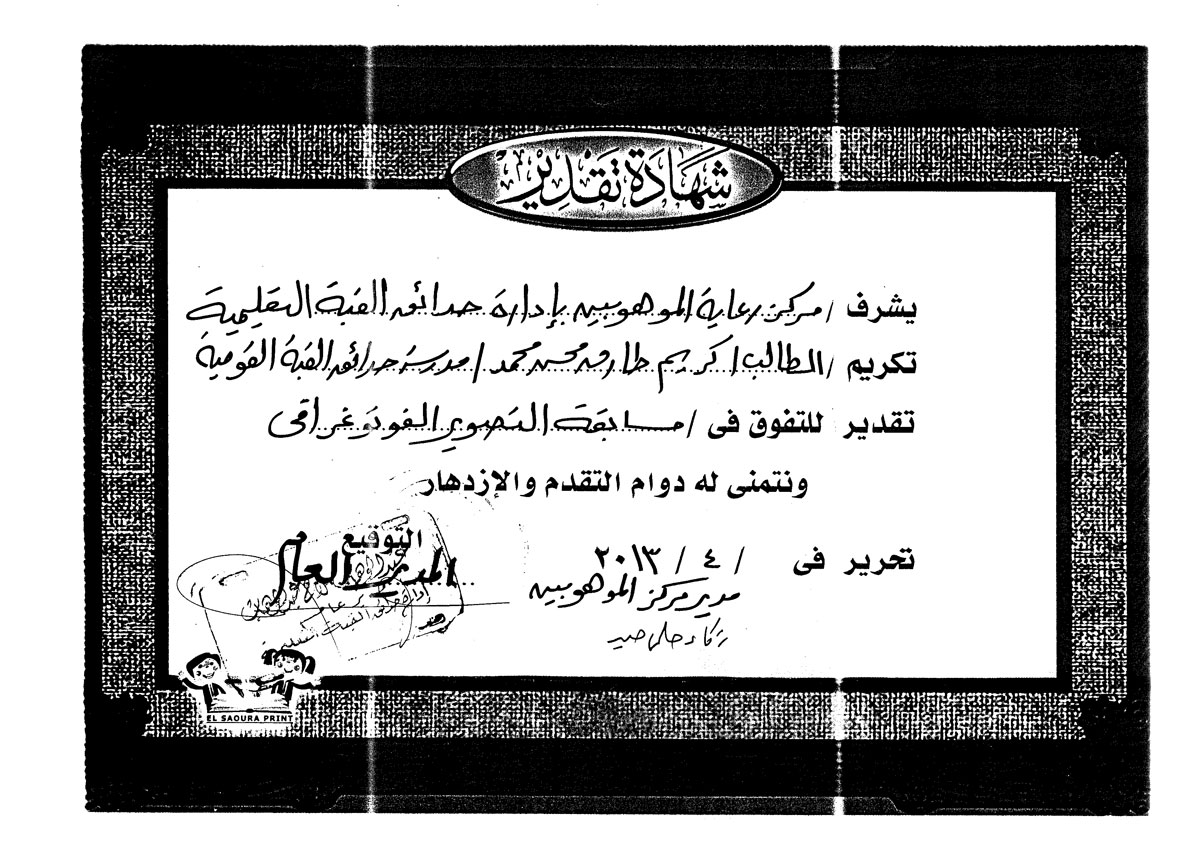 شهادة تقدير
يشرف / مركز رعاية الموهوبين بإدارة حدائق القبة التعليمية
تكريم / الطالب / كريم طارق محسن محمد / مدرسة حدائق القبة القومية
تقدير للتفوق فى / مسابقة التصوير الفوتوغرافى
ونتمنى له دوام التقدم والإزدهار
تحرير فى / ٤ / ٢٠١٣
التوقيع
مدير مركز الموهوبين
المدير العام
EL SAOURA PRINT